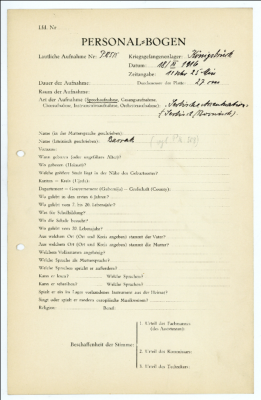 Lfd. Nr.
PERSONAL-BOGEN
Lautliche Aufnahme Nr.: Kriegsgefangenenlager: Königsbrück
Datum: 1916
Zeitangabe: 11 Uhr 25 Min
Dauer der Aufnahme: Durchmesser der Platte: 27 cm
Raum der Aufnahme:
Art der Aufnahme (Sprechaufnahme, Gesangsaufnahme,
Choraufnahme, Instrumentenaufnahme, Orchesteraufnahme):
Name (in der Muttersprache geschrieben):
Name (lateinisch geschrieben):
Vorname:
Wann geboren (oder ungefähres Alter)?
Wo geboren (Heimat)?
Welche größere Stadt liegt in der Nähe des Geburtsortes?
Kanton — Kreis (Ujedz):
Departement — Gouvernement (Gubernija) — Grafschaft (County):
Wo gelebt in den ersten 6 Jahren?
Wo gelebt vom 7. bis 20. Lebensjahr?
Was für Schulbildung?
Wo die Schule besucht?
Wo gelebt vom 20. Lebensjahr?
Aus welchem Ort (Ort und Kreis angeben) stammt der Vater?
Aus welchem Ort (Ort und Kreis angeben) stammt die Mutter?
Welchem Volksstamm angehörig?
Welche Sprache als Muttersprache?
Welche Sprachen spricht er außerdem?
Kann er lesen? Welche Sprachen?
Kann er schreiben? Welche Sprachen?
Spielt er ein im Lager vorhandenes Instrument aus der Heimat?
Singt oder spielt er modern europäische Musikweisen?
Religion: Beruf:
Beschaffenheit der Stimme:
1. Urteil des Fachmannes
(des Assistenten):
2. Urteil des Kommissars:
3. Urteil des Fachmannes: